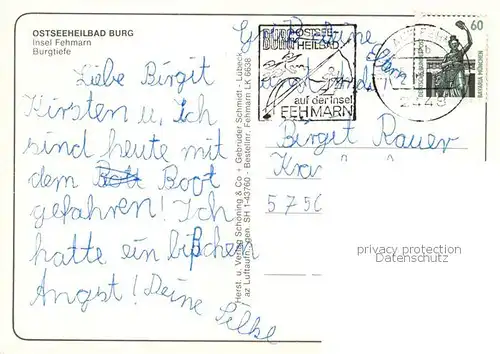 OSTSEEHEILBAD BURG
Insel Fehmarn
Burgtiefe
Liebe Birgit
Kirsten u. Ich
sind heute mit
dem Boot
gefahren! Ich
hatte ein bißchen
Angst! Deine Silke
Herst. u. Verlag Schöning & Co + Gebrüder Schmidt - Lübeck
az Luftaufn. gen. SH 1-43760 - Bestellnr. Fehmarn LK 6638
BURG OSTSEE-
HEILBAD
auf der Insel
FEHMARN
2448
60
BAVARIA MÜNCHEN
Eltern
Birgit Rauer
5 7 5
privacy protection
Datenschutz